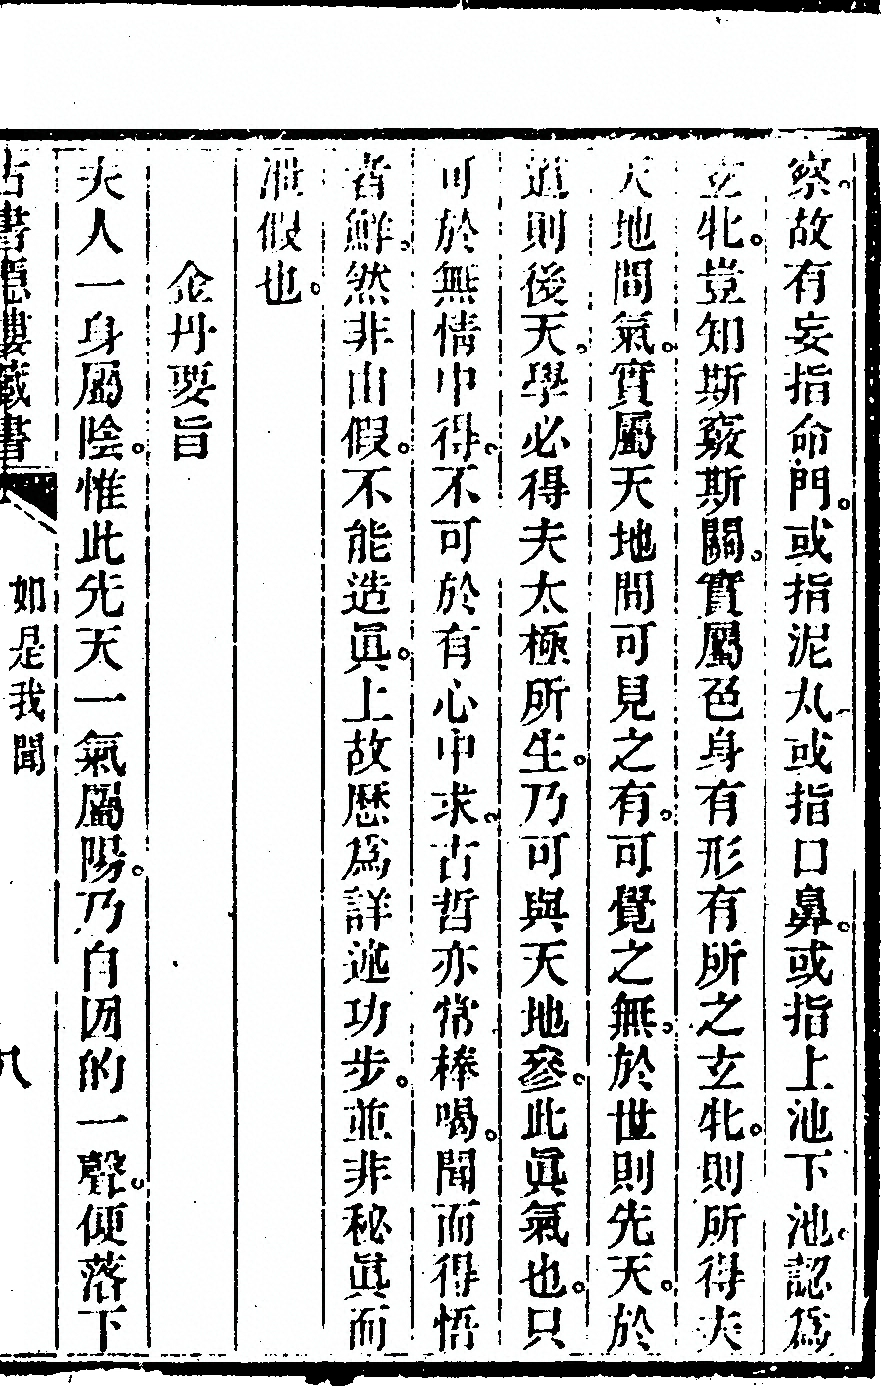 察。故有妄指命門。或指泥丸。或指口鼻。或指上池下池。認爲
玄牝。豈知斯竅斯關。實屬色身有形有所之玄牝。則所得夫
天地間氣。實屬天地間可見之有。可覺之無。於世則先天。於
道則後天。學必得夫太極所生。乃可與天地參。此眞氣也。只
可於無情中得。不可於有心中求。古哲亦常棒喝。聞而得悟
者鮮。然非由假。不能造眞。上故歷爲詳述功步。並非秘眞而
泄假也。
金丹要旨
夫人一身屬陰。惟此先天一氣屬陽。乃自因的一聲。便落下
古書隱樓藏書
如是我聞
八